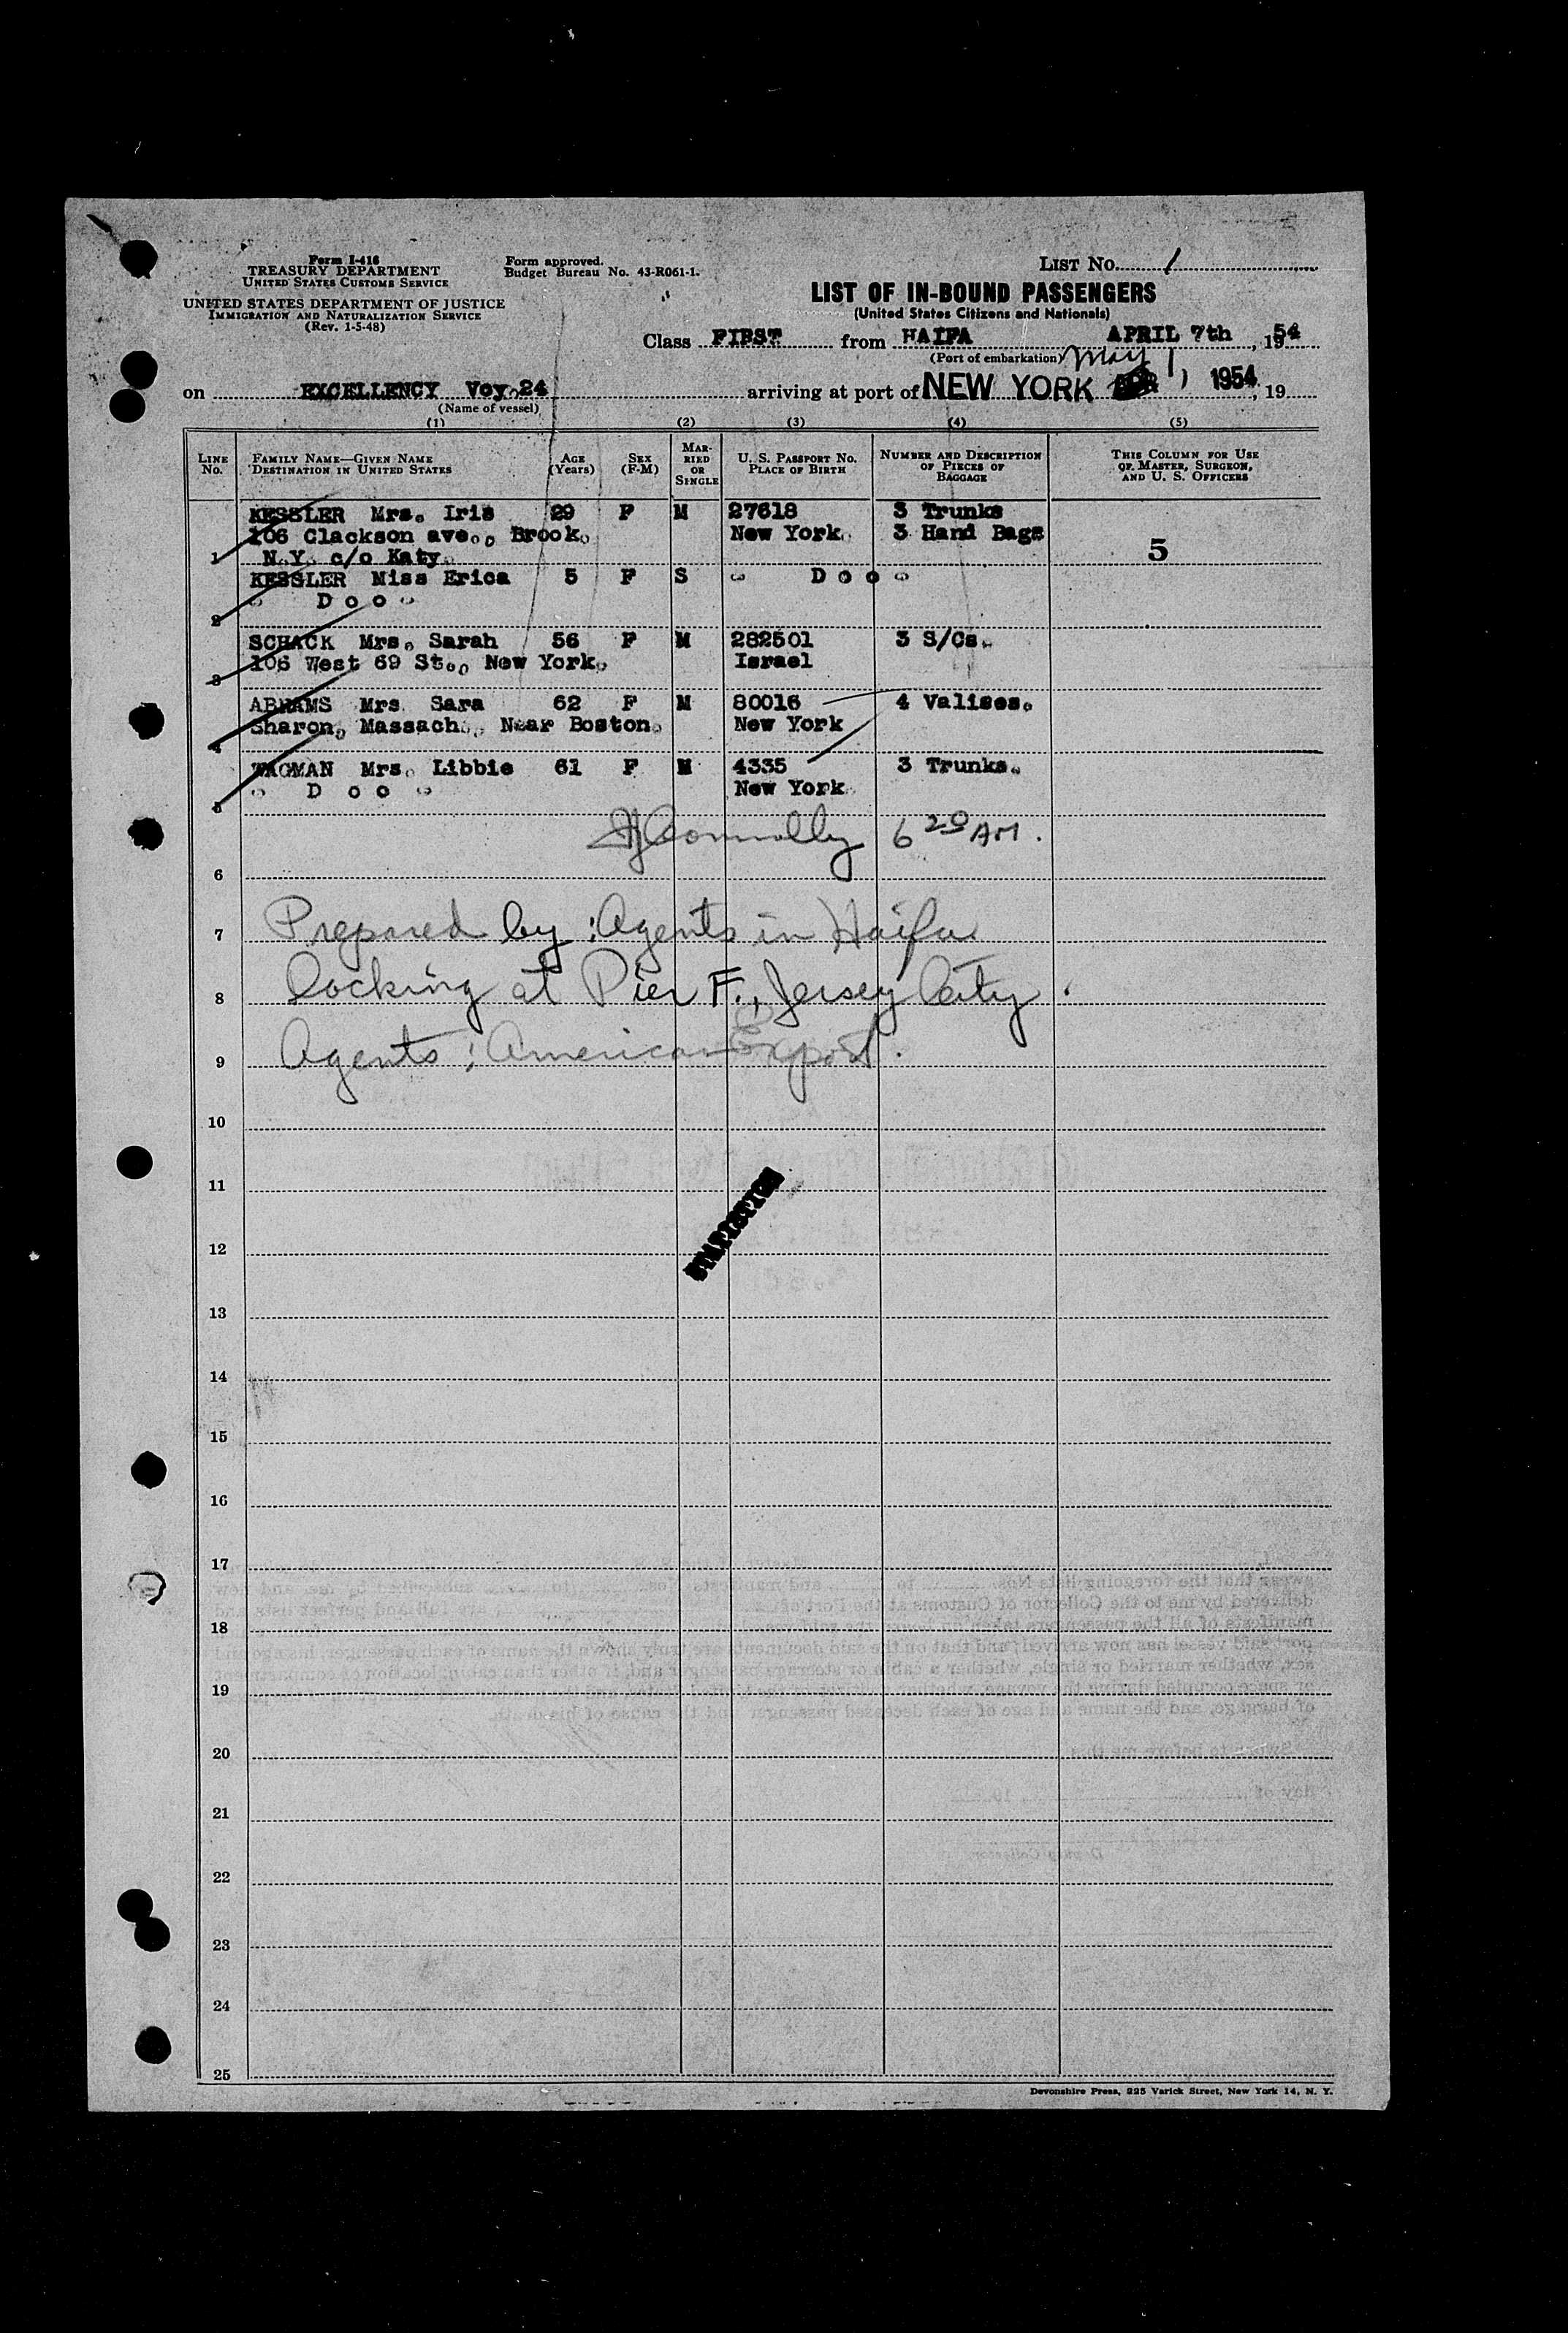 Form I-416
TREASURY DEPARTMENT
UNITED STATES CUSTOMS SERVICE
UNITED STATES DEPARTMENT OF JUSTICE
IMMIGRATION AND NATURALIZATION SERVICE
(Rev. 1-5-48)
Form approved.
Budget Bureau No. 43-R061-1.
LIST No. 1
LIST OF IN-BOUND PASSENGERS
(United States Citizens and Nationals)
Class FIRST from HAIFA APRIL 7th, 1954
(Port of embarkation) May 1
on EXCELLENCY Voy.24 arriving at port of NEW YORK 1954, 19
(Name of vessel)
(1) (2) (3) (4) (5)
LINE No. FAMILY NAME—GIVEN NAME DESTINATION IN UNITED STATES AGE (Years) SEX (F-M) MARRIED OR SINGLE U. S. PASSPORT NO. PLACE OF BIRTH NUMBER AND DESCRIPTION OF PIECES OF BAGGAGE THIS COLUMN FOR USE OF MASTER, SURGEON, AND U. S. OFFICERS
KESSLER Mrs. Iris 29 F M 27618 3 Trunks
106 Clackson ave., Brook. New York. 3 Hand Bags
1 N.Y. c/o Katy. 5
KESSLER Miss Erica 5 F S " D o o "
" D o o "
2
SCHACK Mrs. Sarah 56 F M 282501 3 S/Cs.
106 West 69 St., New York. Israel
3
ABRAMS Mrs. Sara 62 F M 80016 4 Valises.
Sharon, Massach., Near Boston. New York
4
WAGMAN Mrs. Libbie 61 F M 4335 3 Trunks.
" D o o " New York.
5
Connolly 6 20 AM.
6
7 Prepared by: Agents in Haifa
8 Docking at Pier F., Jersey City.
9 Agents: American Export.
10
11
12
13
14
15
16
17
18
19
20
21
22
23
24
25
Devonshire Press, 225 Varick Street, New York 14, N. Y.